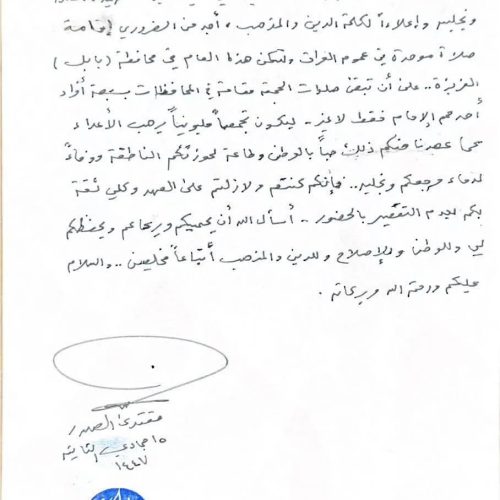 ونجليه وإعلاءاً لكلمة الدين والمذهب، أجد من الضروري إقامة
صلاة موحدة في عموم العراق ولتكن هذا العام في محافظة (بابل)
العزيزة.. على أن تبقى صلوات الجمعة مقامة في المحافظات بسبعة أفراد
أحدهم الإمام فقط لا غير.. ليكون تجمعاً مليونياً يرهب الأعداء
كما عهدنا منكم ذلك حباً بالوطن وطاعة لحوزتكم الناطقة ووفاءً
لدماء مرجعكم ونجليه.. فإنكم كنتم ولازلتم على العهد وكلي ثقة
بكم بعدم التقصير بالحضور.. أسأل الله أن يحميكم ويرعاكم ويحفظكم
لي وللوطن وللإصلاح وللدين والمذهب أتباعاً مخلصين.. والسلام
عليكم ورحمة الله وبركاته.
مقتدى الصدر
١٥ جمادي الثانية
١٤٤٧